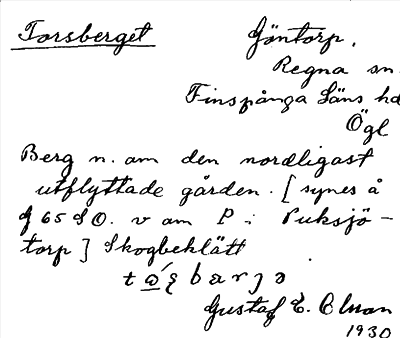 Torsberget Göntorp.
Regna sn.
Finspånga Läns hd
Ögl
Berg n. om den nordligast
utflyttade gården. [synes å
g 65 SO. v om P i Puksjö-
torp] Skogbeklätt
Gustaf E. Olson
1930